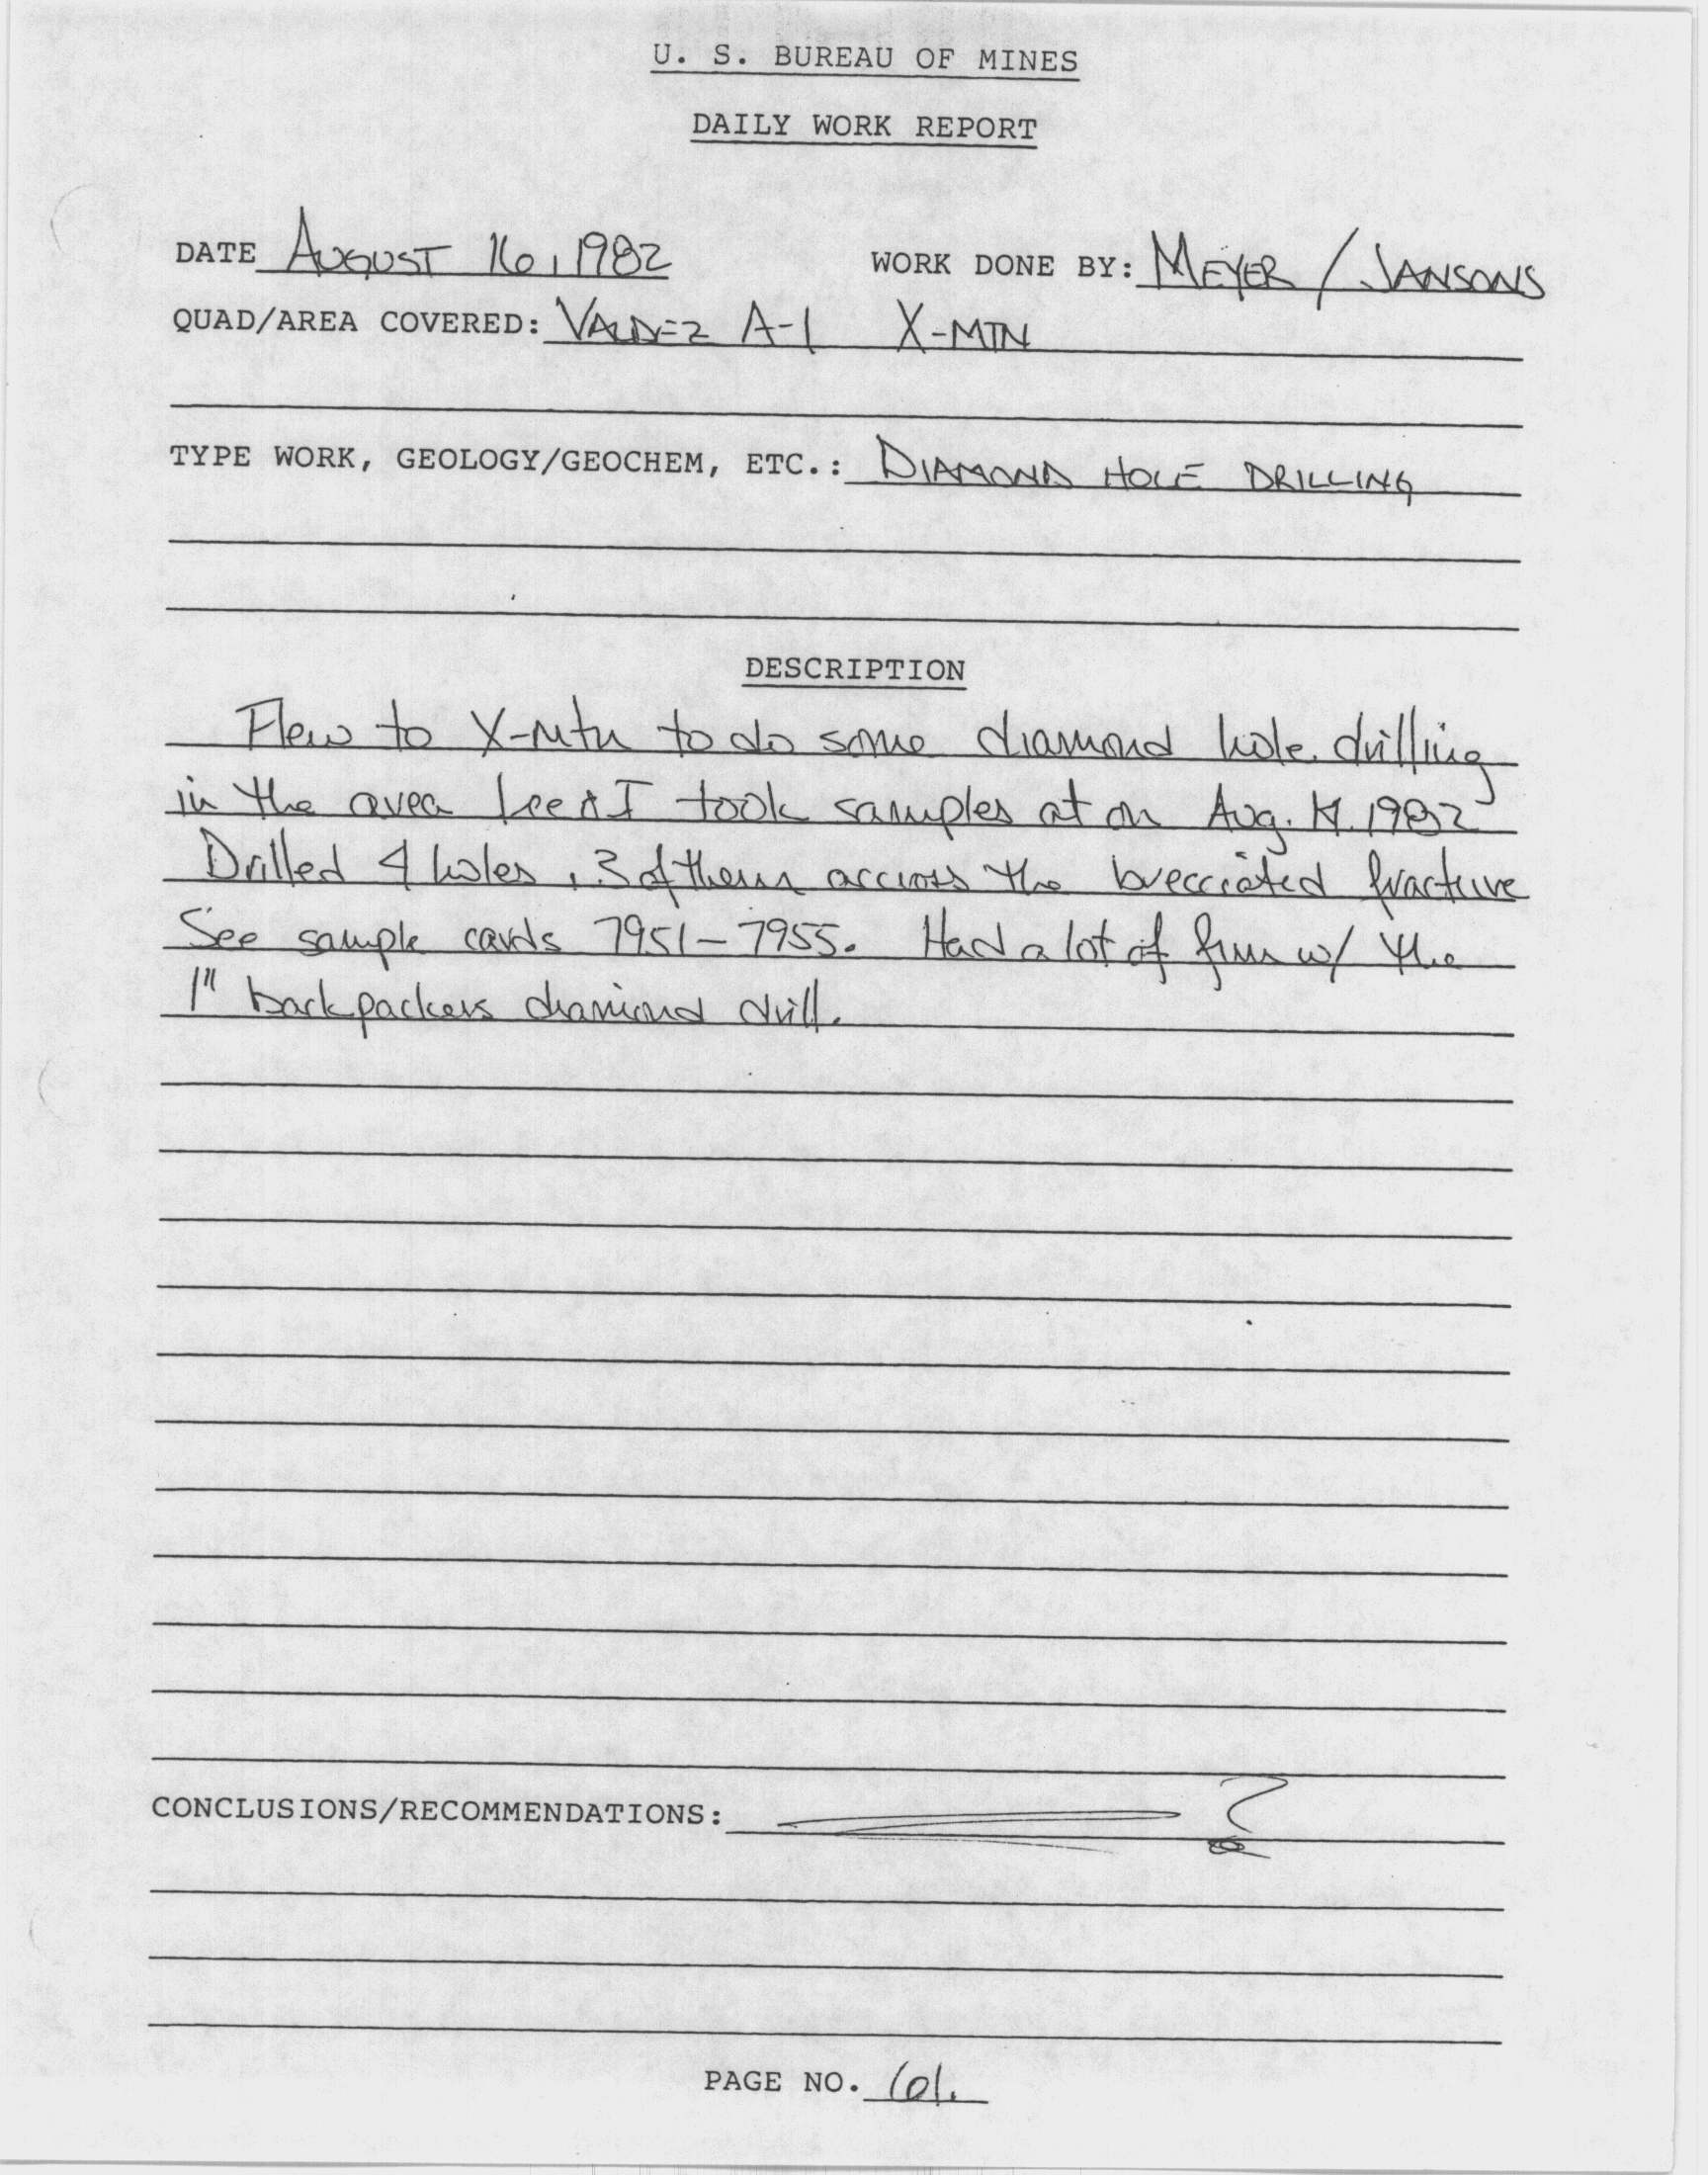 U. S. BUREAU OF MINES
DAILY WORK REPORT
DATE AUGUST 16, 1982 WORK DONE BY: MEYER / JANSONS
QUAD/AREA COVERED: VALDEZ A-1 X-MTN
TYPE WORK, GEOLOGY/GEOCHEM, ETC.: DIAMOND HOLE DRILLING
DESCRIPTION
Flew to X-Mtn to do some diamond hole drilling
in the area Lee & I took samples at on Aug. 1982
Drilled 4 holes, 3 of them accross the brecciated fracture
See sample cards 7951-7955. Had a lot of fun w/ the
1" backpackers diamond drill.
CONCLUSIONS/RECOMMENDATIONS: ?
PAGE NO. 101.